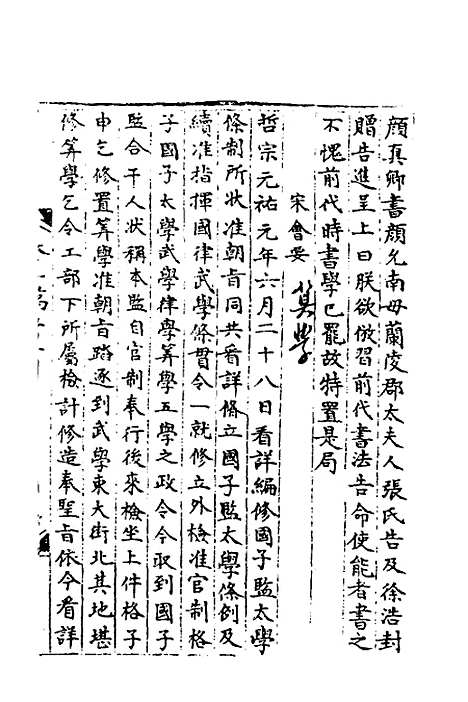 顔真卿書顔允南母蘭陵郡太夫人張氏告及徐浩封
贈告進呈上曰朕欲倣習前代書法告命使能者書之
不愧前代時書學已罷故特置是局
宋會要
算學
哲宗元祐元年六月二十八日看詳編修國子監太學
條制所狀准朝旨同共看詳脩立國子監太學條例及
續准指揮國律武學條貫令一就修立外檢准官制格
子國子太學武學律學筭學五學之政令今取到國子
監合干人狀稱本監自官制奉行後來檢坐上件格子
申乞修置筭學准朝旨踏逐到武學東大街北其地堪
修筭學乞令工部下所屬檢計修造奉聖旨依今看詳